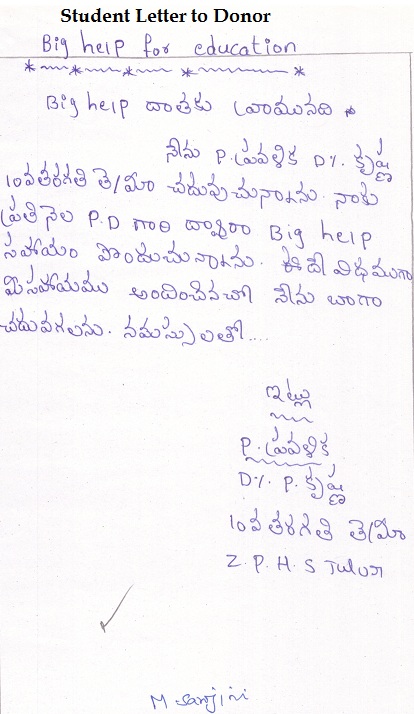 Student Letter to Donor
Big help for education
Big help దాతకు వ్రాయునది
నేను P. ప్రవళిక D/. కృష్ణ
10వ తరగతి తె/మీ చదువుచున్నాను. నాకు
ప్రతి నెల P.D గారి ద్వారా Big help
సహాయం పొందుచున్నాను. ఈదే విధముగా
మీ సహాయము అందించినచో నేను బాగా
చదువగలను. నమస్సులతో....
ఇట్లు
P. ప్రవళిక
D/. P. కృష్ణ
10వ తరగతి తె/మీ
Z. P. H. S
M